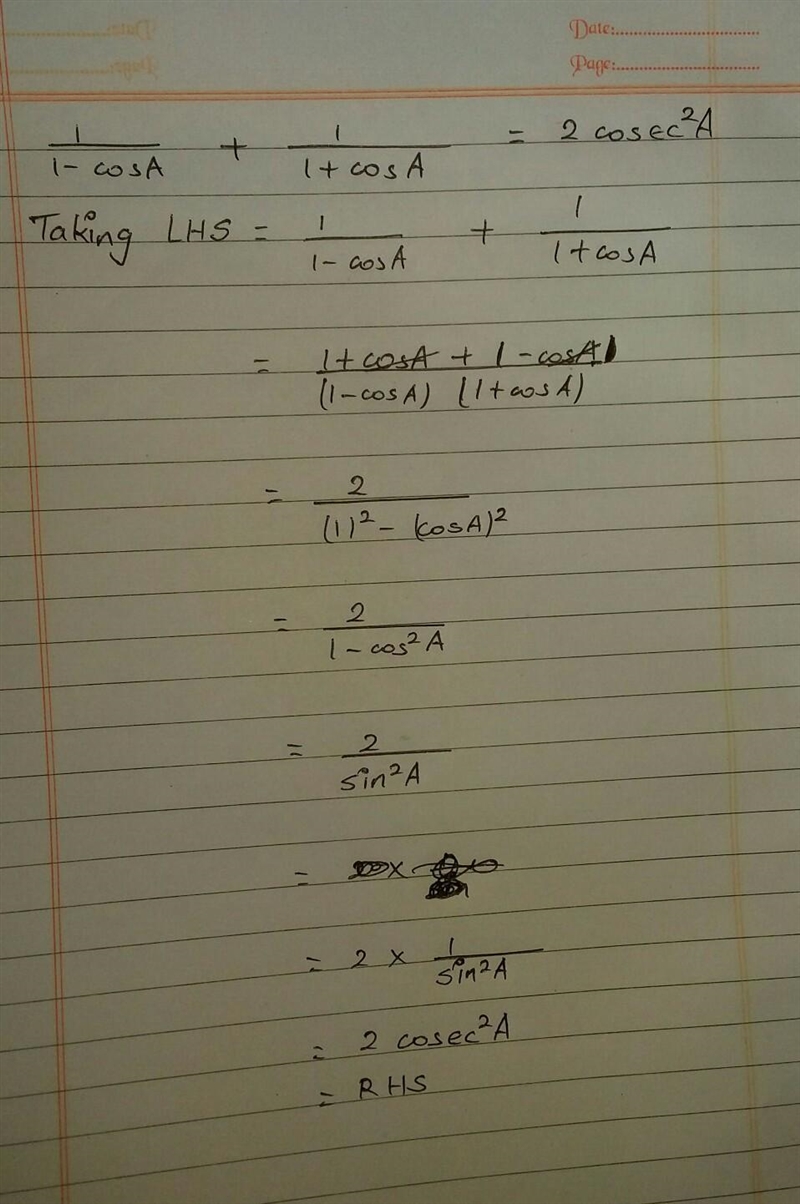 Date:
Page:
1/(1 - cosA) + 1/(1 + cosA) = 2 cosec²A
Taking LHS = 1/(1 - cosA) + 1/(1 + cosA)
= (1 + cosA + 1 - cosA)/((1 - cosA) (1 + cosA))
= 2/((1)² - (cosA)²)
= 2/(1 - cos²A)
= 2/sin²A
= ×
= 2 × 1/sin²A
= 2 cosec²A
= RHS